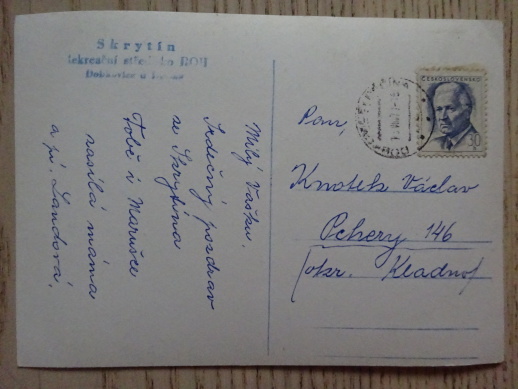 Skrytín
rekreační středisko ROH
Milý Vašku.
Srdečný pozdrav
ze Skrytína
Tobě i Marušce
zasílá máma
a pí. Landová.
ČESKOSLOVENSKO
30
Pan,
Knotek Václav
Pchery 146
/okr. Kladno/